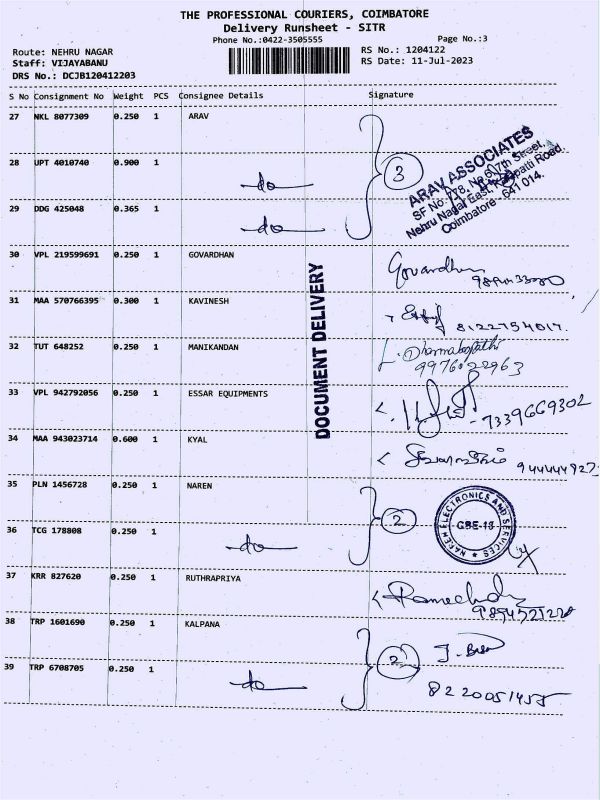 THE PROFESSIONAL COURIERS, COIMBATORE
Delivery Runsheet - SITR
Phone No.:0422-3505555 Page No.:3
Route: NEHRU NAGAR RS No.: 1204122
Staff: VIJAYABANU RS Date: 11-Jul-2023
DRS No.: DCJB120412203
S No Consignment No Weight PCS Consignee Details Signature
27 NKL 8077309 0.250 1 ARAV
28 UPT 4010740 0.900 1 do 3
ARAV ASSOCIATES
SF No. 778, No. 6, 7th Street,
Nehru Nagar East, Kalapatti Road,
Coimbatore - 641 014.
29 DDG 425048 0.365 1 do
30 VPL 219599691 0.250 1 GOVARDHAN Govardhan
31 MAA 570766395 0.300 1 KAVINESH 8122754017.
DOCUMENT DELIVERY
32 TUT 648252 0.250 1 MANIKANDAN L. Dharmabopathi
9976022963
33 VPL 942792056 0.250 1 ESSAR EQUIPMENTS 7339669302
34 MAA 943023714 0.600 1 KYAL 944444927
35 PLN 1456728 0.250 1 NAREN 2
NAREN ELECTRONICS AND SERVICES
CBE-18
36 TCG 178808 0.250 1 do
37 KRR 827620 0.250 1 RUTHRAPRIYA
38 TRP 1601690 0.250 1 KALPANA 2
39 TRP 6708705 0.250 1 do 8220051455